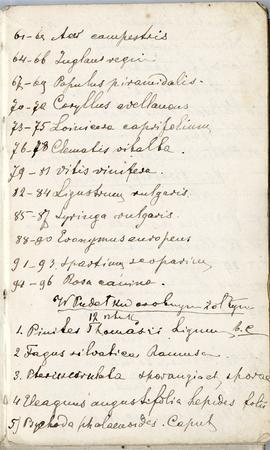 61-63 Acer campestris
64-66 Juglans regia
67-69 Populus piramidalis.
70-72 Coryllus avellanous
73-75 Lonicera caprifolium
76-78 Clematis vitalba.
79-81 Vitis vinifera.
82-84 Ligustrum vulgaris.
85-87 Syringa vulgaris.
88-90 Evonymus europeus
91-93 Spartium scoparium
94-96 Rosa canina.
W Pudełku osobnym żółtym
12 sztuk
1. Pinites Thomasii Lignum b.c
2 Fagus silvatica Ramusc.
3. sporangia ct. sporae
4 Eleagnus angustifolia lepides folii
5) Psychoda phalaenoides. Caput